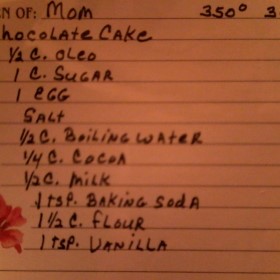 EN OF: Mom 350° 3
hocolate Cake
1/2 C. OLEO
1 C. SUGAR
1 EGG
SALT
1/2 C. BOILING WATER
1/4 C. COCOA
1/2 C. MILK
1 TSP. BAKING SODA
1 1/2 C. FLOUR
1 TSP. VANILLA